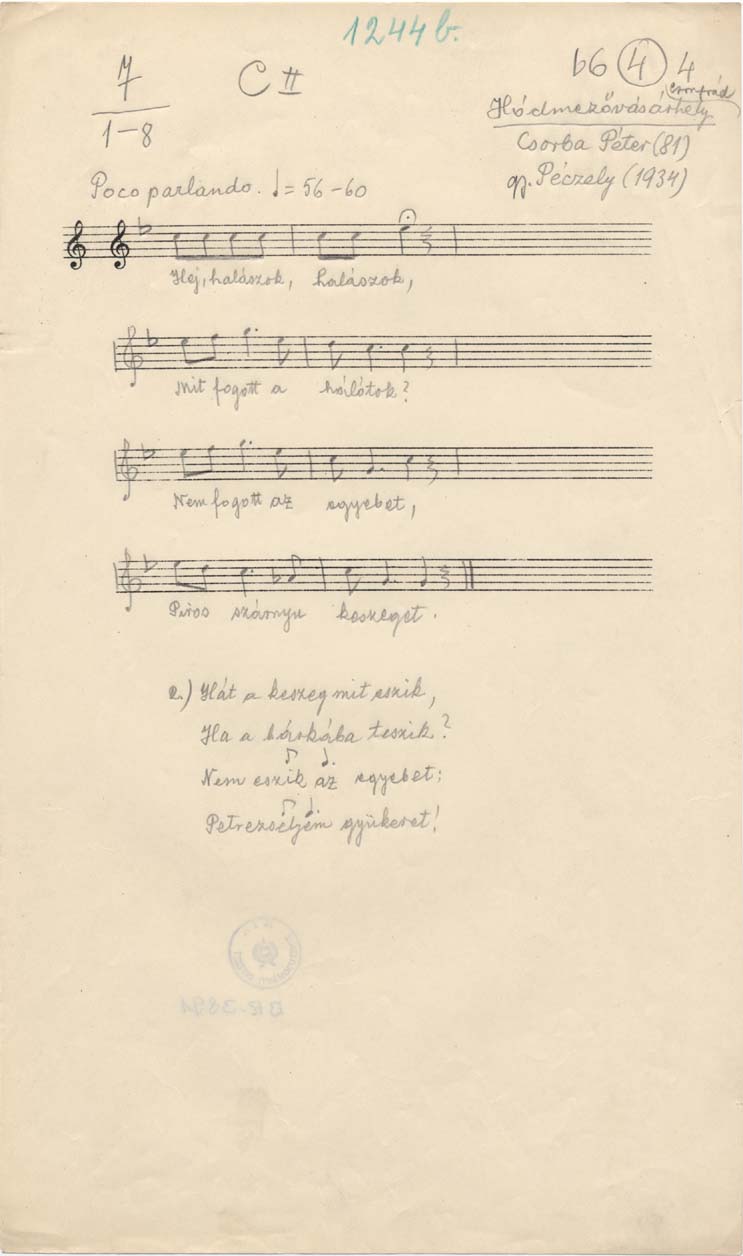 1244 b.
7
1-8
C II
b6 (4) 4
Csongrád
Hódmezővásárhely
Csorba Péter (81)
gy. Péczely (1934)
Poco parlando. ♩= 56-60
Hej, halászok, halászok,
Mit fogott a hálótok?
Nem fogott az egyebet,
Piros szárnyu keszeget.
2.) Hát a keszeg mit eszik,
Ha a bárkába teszik?
Nem eszik az egyebet:
Petrezseljem gyükeret!
BR-3891